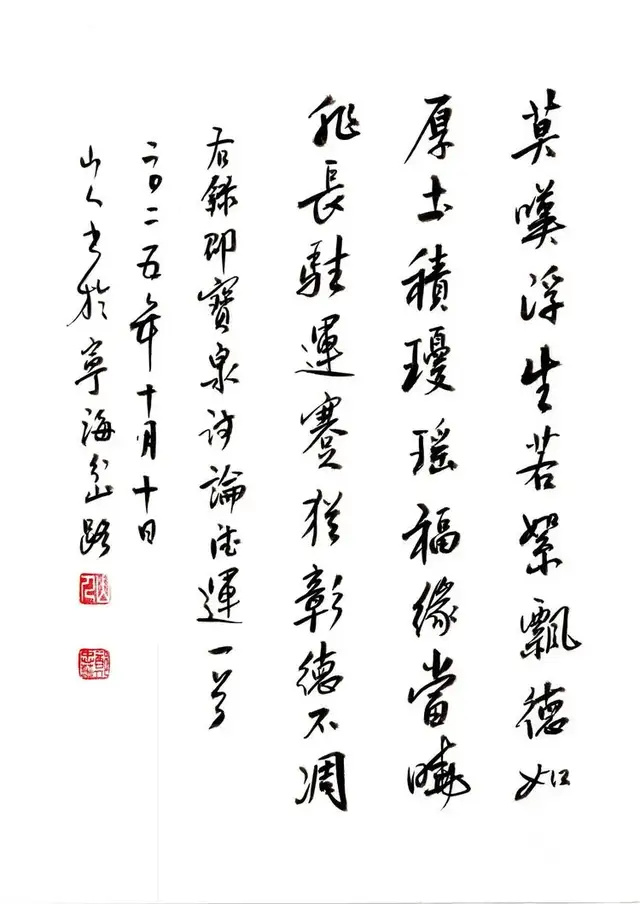 莫嘆浮生若絮飄德如
厚土積瓊瑶福緣當曉
非長駐運蹇猶彰德不凋
右錄即寶泉詩論德運一首
二〇二五年十月十日
山人书於寧海岔路